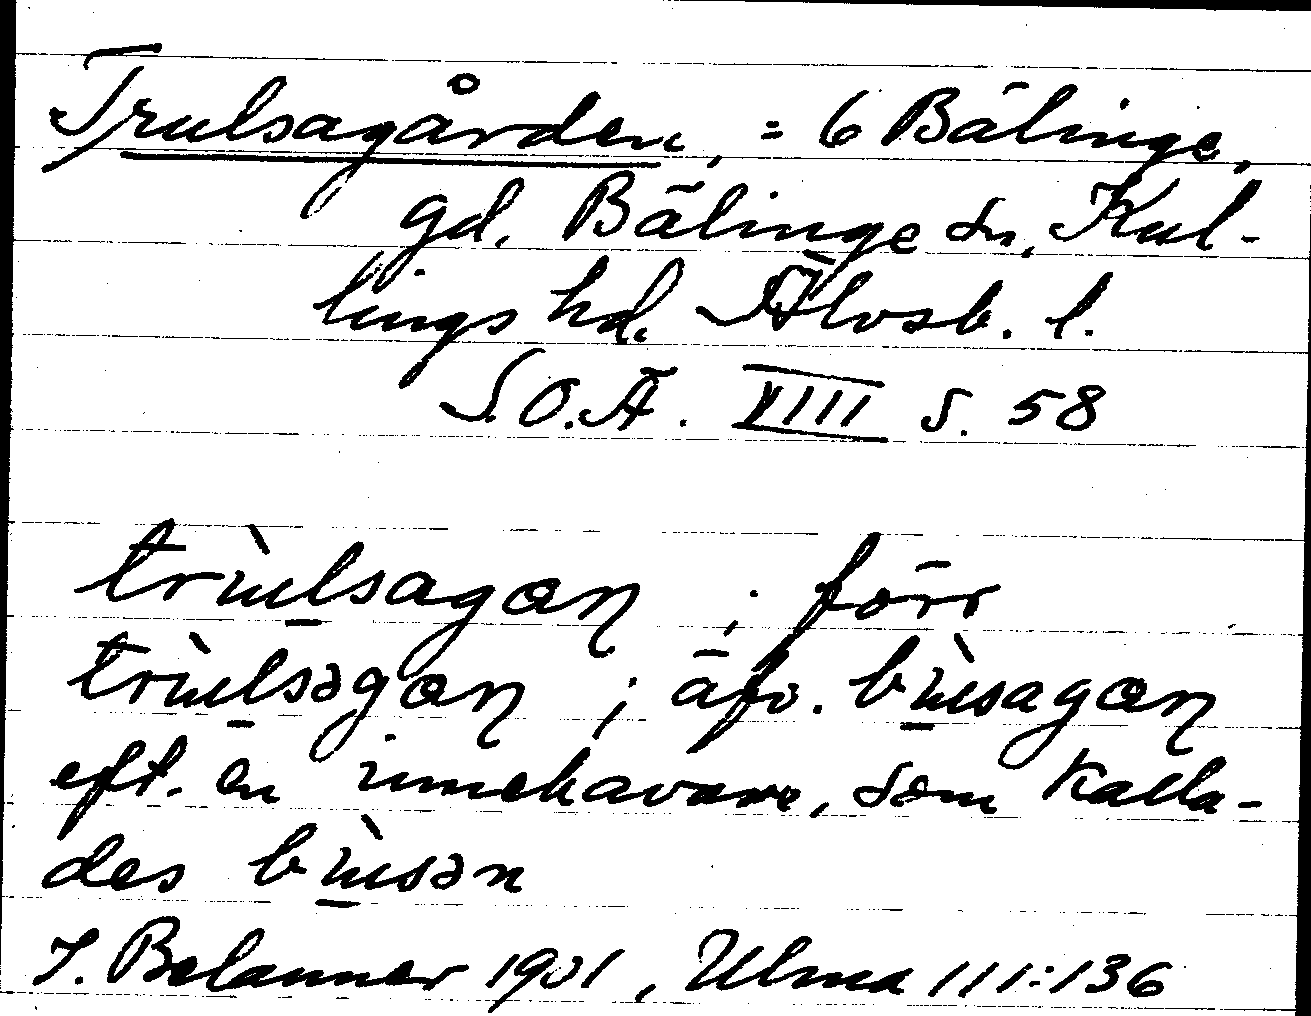 Trulsagården, = 6 Bälinge,
gd. Bälinge sn, Kul-
lings hd. Älvsb. l.
S.O.Ä. VIII s. 58
trùlsagan ; förr
trùlsəgan ; äfv. bùsagan
eft. en innehavare, som kalla-
des bùsən
J. Belanner 1901, Ulma 111:136